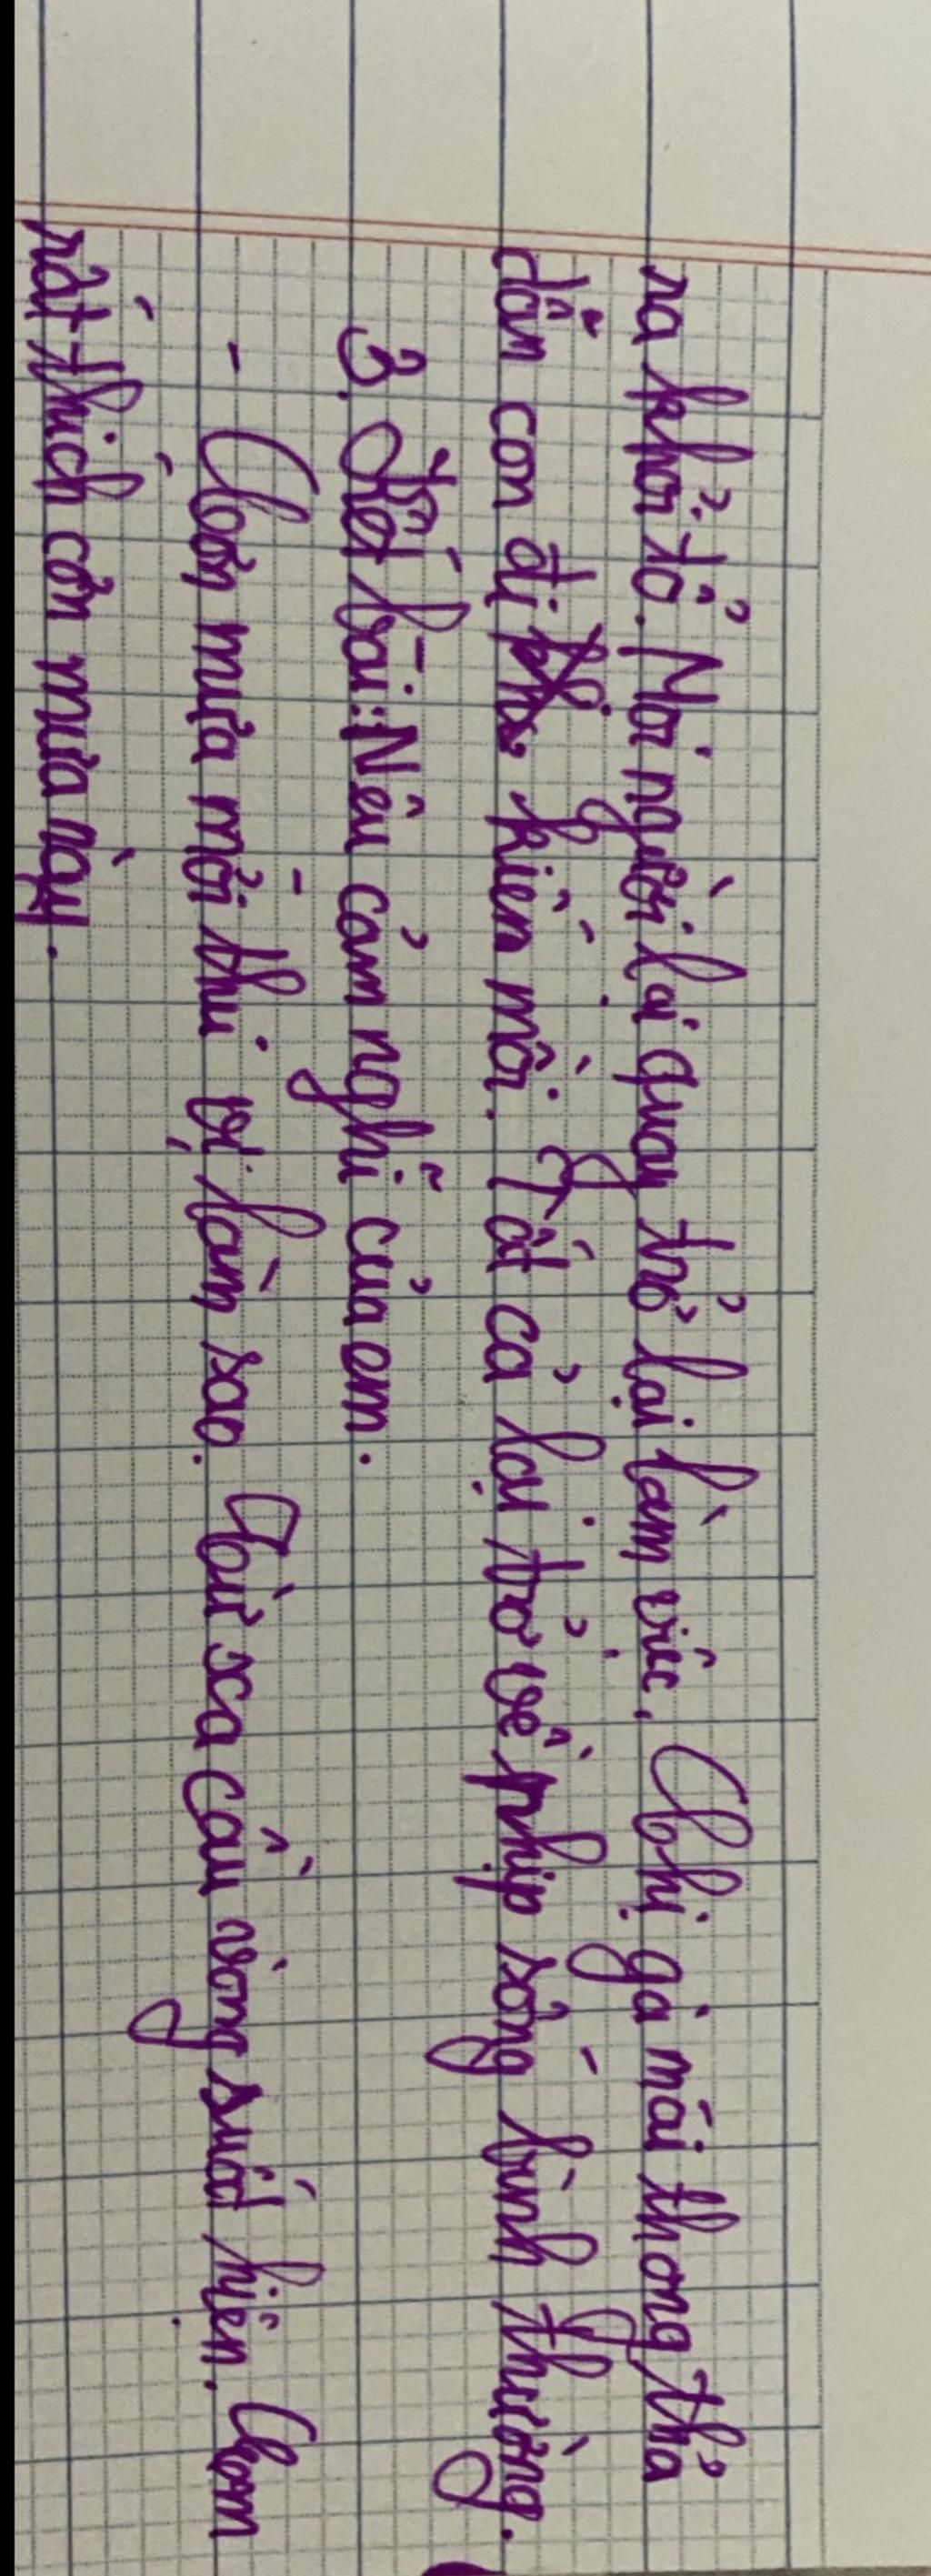 ra khỏi tổ. Mọi người lại quay trở lại làm việc. Chị gà mái thong thả
dẫn con đi kiếm mồi. Tất cả lại trở về nhịp sống bình thường.
3. Kết bài: Nêu cảm nghĩ của em.
- Cơn mưa mới thu vị làm sao. Từ xa cầu vòng suất hiện. Com
rất thích cơn mưa này.